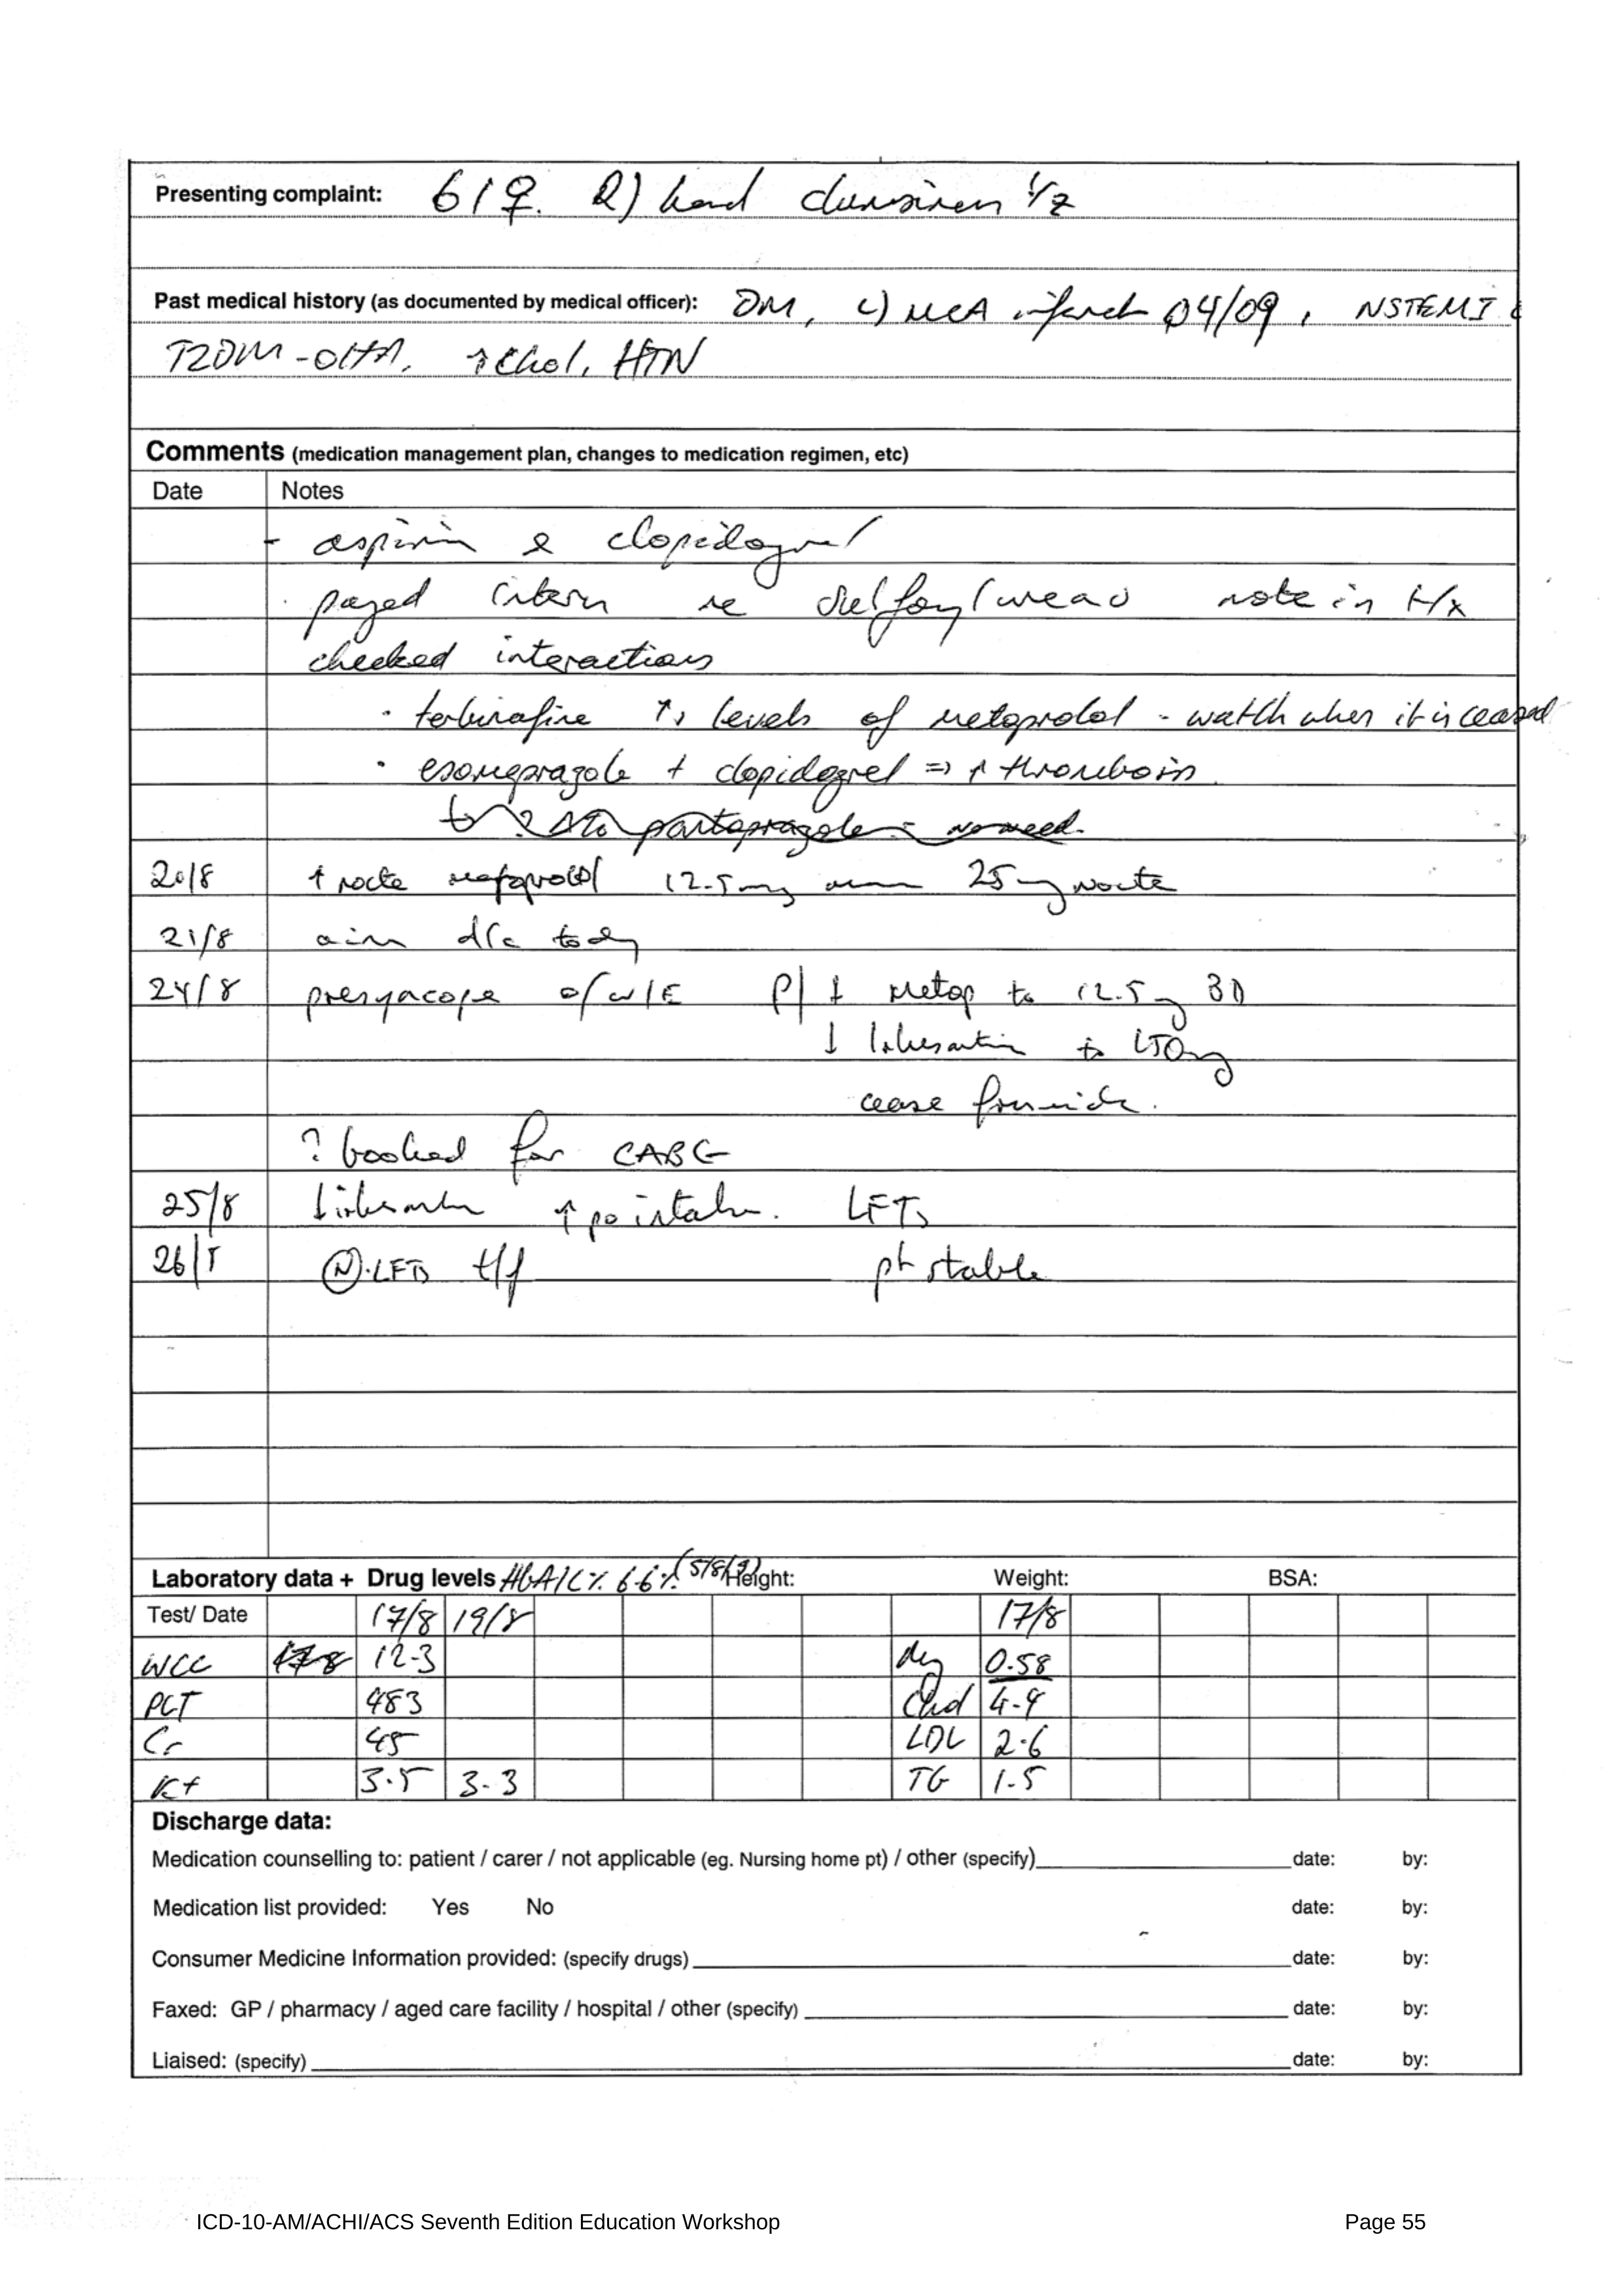 Presenting complaint: 61♀. R) hand clumsiness 1/7
Past medical history (as documented by medical officer): DM, L) MCA infarct 04/09, NSTEMI
T2DM - OHA. ↑Chol, HTN
Comments (medication management plan, changes to medication regimen, etc)
Date Notes
- aspirin & clopidogrel
· paged intern re note in H/x
checked interactions
· terbinafine ↑s levels of metoprolol - watch when it is ceased
· esomeprazole + clopidogrel => ↑ thrombosis
? Δ to pantoprazole - no need.
20/8 ↑ nocte metoprolol 12.5mg mane 25mg nocte
21/8 aim d/c today
24/8 presyacope o/w/E P/ ↓ Metop to 12.5mg BD
↓ Irbesartan to 150mg
cease frusemide.
? booked for CABG
25/8 ↓ irbesartan ↑ po intake. LFTs
26/8 (N) LFTs t/f pt stable
Laboratory data + Drug levels HbA1C% 6.6% (5/8/9) Height: Weight: BSA:
Test/ Date 17/8 19/8 17/8
WCC 178 12.3 Mg 0.58
PLT 483 Chol 4.9
Cr 45 LDL 2.6
K+ 3.5 3.3 TG 1.5
Discharge data:
Medication counselling to: patient / carer / not applicable (eg. Nursing home pt) / other (specify) date: by:
Medication list provided: Yes No date: by:
Consumer Medicine Information provided: (specify drugs) date: by:
Faxed: GP / pharmacy / aged care facility / hospital / other (specify) date: by:
Liaised: (specify) date: by:
ICD-10-AM/ACHI/ACS Seventh Edition Education Workshop Page 55